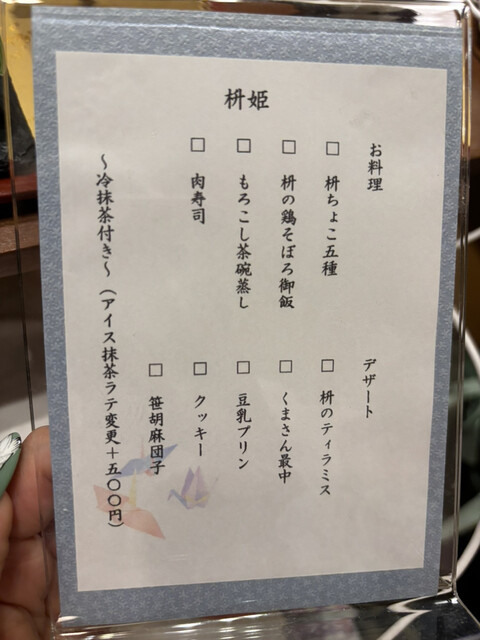 枡姫
お料理
□ 枡ちょこ五種
□ 枡の鶏そぼろ御飯
□ もろこし茶碗蒸し
□ 肉寿司
デザート
□ 枡のティラミス
□ くまさん最中
□ 豆乳プリン
□ クッキー
□ 笹胡麻団子
～冷抹茶付き～（アイス抹茶ラテ変更＋五〇〇円）